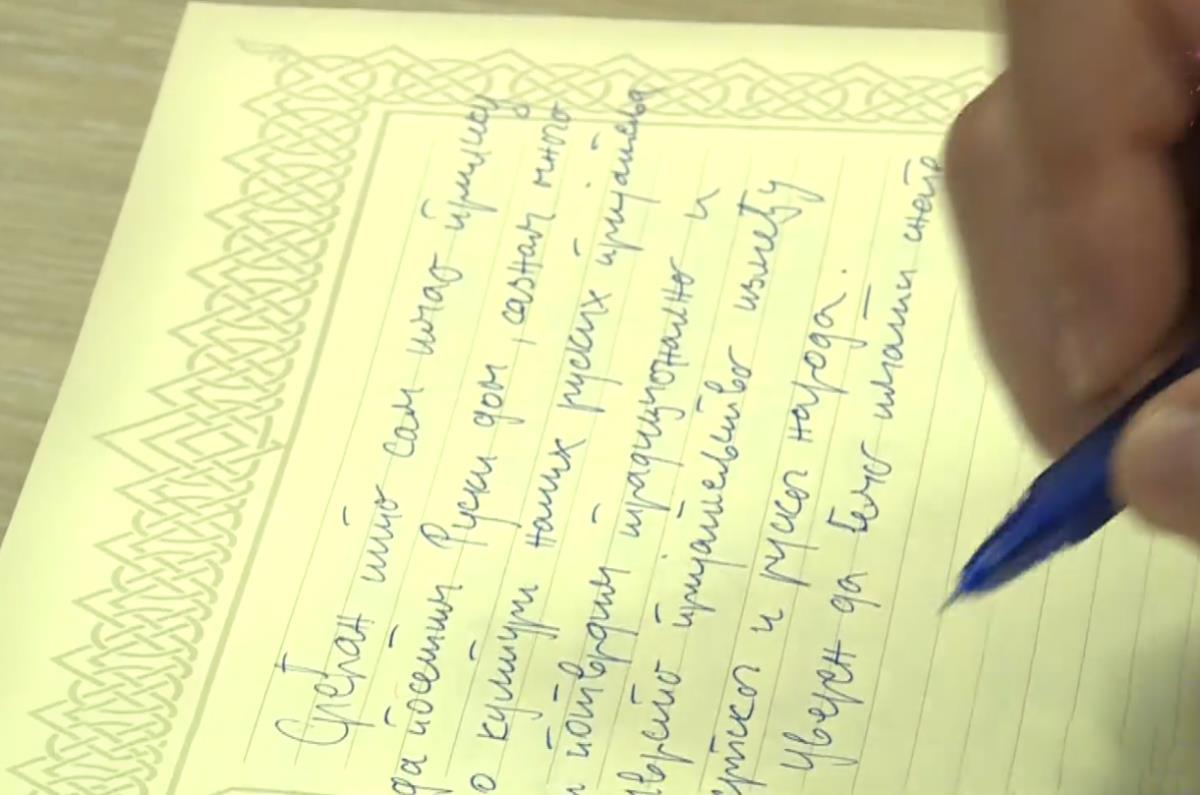 Срећан што сам имао прилику
да посетим Руски дом, сазнам много
о култури наших руских пријатеља
и потврдим традиционално и
чврсто пријатељство између
српског и руског народа.
Уверен да ћемо имати